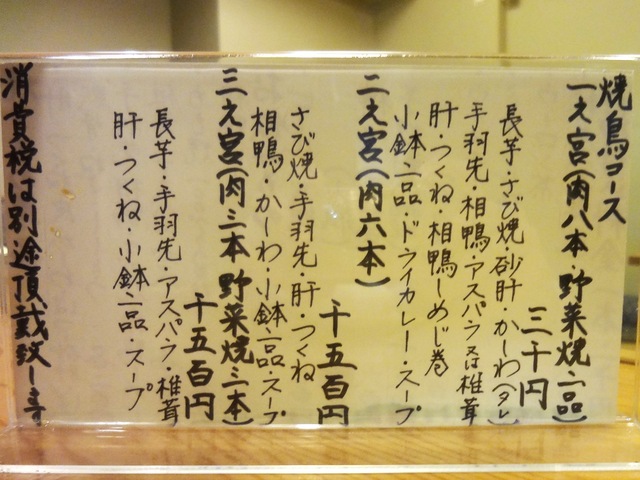 焼鳥コース
一之宮(肉八本 野菜焼二品)
三千円
長芋・さび焼・砂肝・かしわ(タレ)
手羽先・相鴨・アスパラ又は椎茸
肝・つくね・相鴨しめじ巻
小鉢二品・ドライカレー・スープ
二之宮(肉六本)
千五百円
さび焼・手羽先・肝・つくね
相鴨・かしわ・小鉢二品・スープ
三之宮(肉三本 野菜焼三本)
千五百円
長芋・手羽先・アスパラ・椎茸
肝・つくね・小鉢二品・スープ
消費税は別途頂戴致します